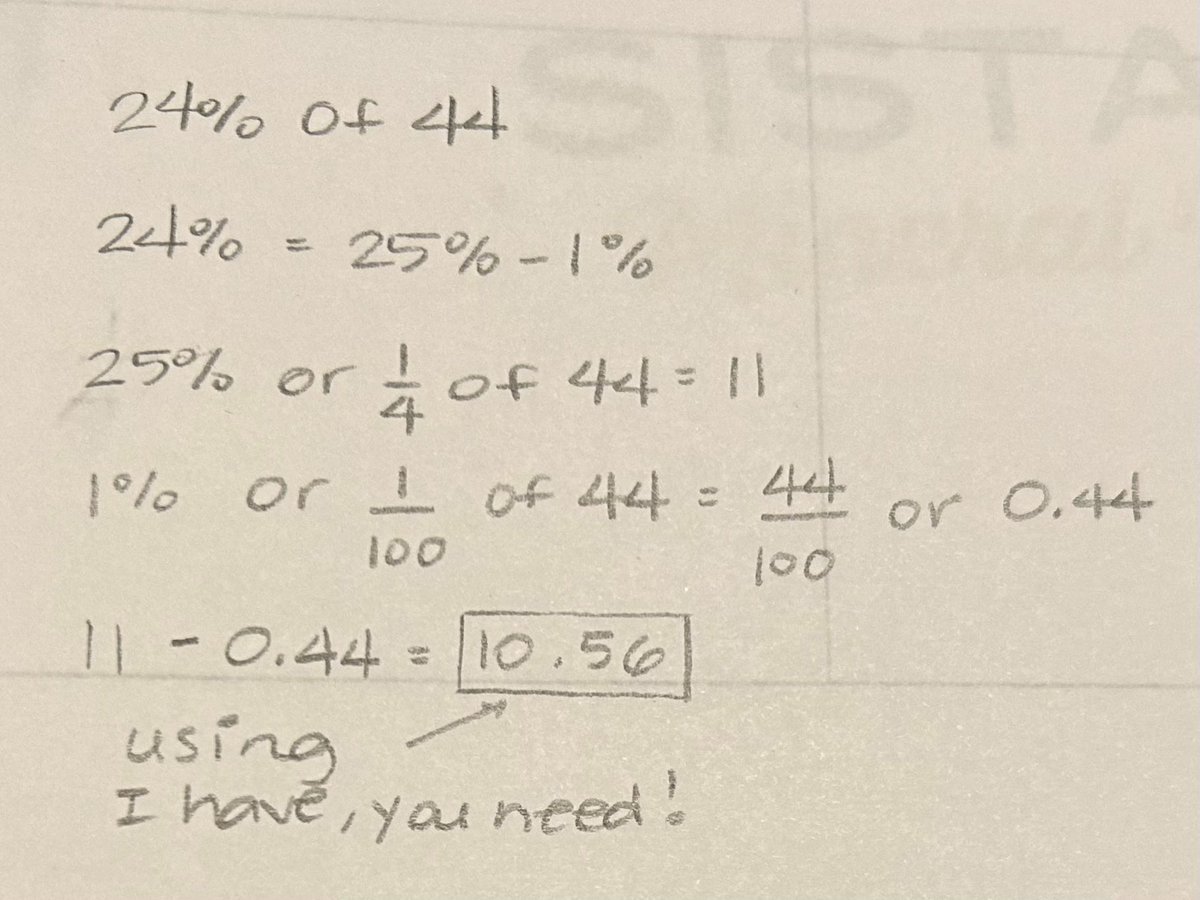 24% of 44
24% = 25% - 1%
25% or 1/4 of 44 = 11
1% or 1/100 of 44 = 44/100 or 0.44
11 - 0.44 = 10.56
using
I have, you need!